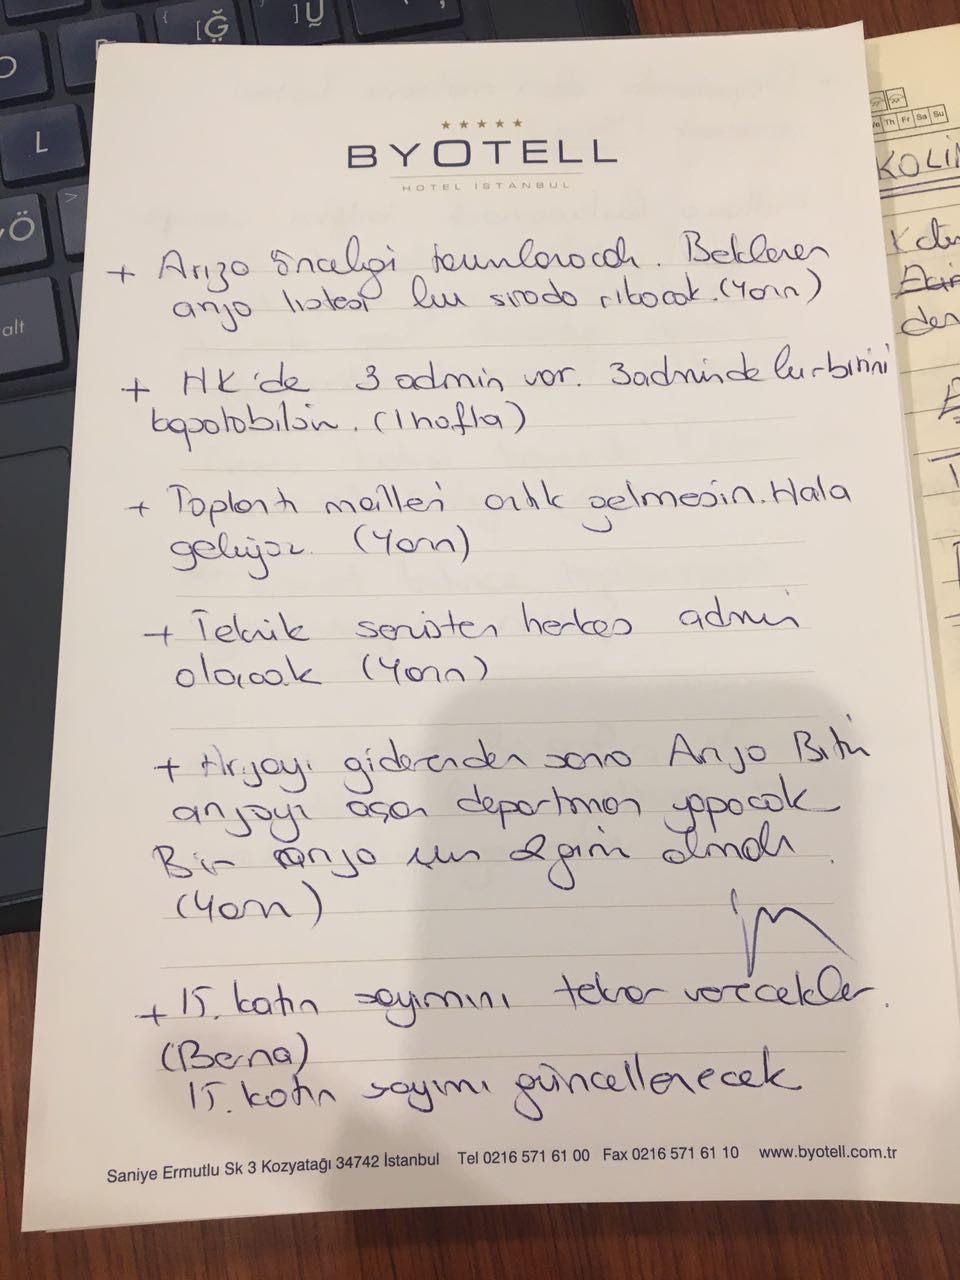 BYOTELL
HOTEL İSTANBUL
+ Arıza önceliği tanımlanacak. Beklenen
arıza listesi bu sırada çıkacak. (Yarın)
+ HK'de 3 admin var. 3 adminde birbirini
kapatabilsin. (1 hafta)
+ Toplantı mailleri artık gelmesin. Hala
geliyor. (Yarın)
+ Teknik servisten herkes admin
olacak (Yarın)
+ Arızayı giderenden sonra Arıza Bitti
arızayı açan departman yapacak
Bir arıza için 2 giriş olmalı.
(Yarın)
+ 15. katın sayımını tekrar verecekler.
(Berna)
15. katın sayımı güncellenecek
Saniye Ermutlu Sk 3 Kozyatağı 34742 İstanbul Tel 0216 571 61 00 Fax 0216 571 61 10 www.byotell.com.tr
Th Fr Sa Su
L
alt
Ö
Ğ
Ü